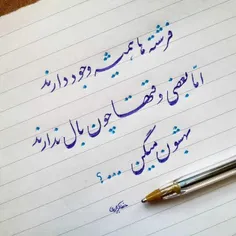 فرشته ها همیشه وجود دارند
امّا بعضی وقتها چون بال ندارند
بهشون میگن ....؟